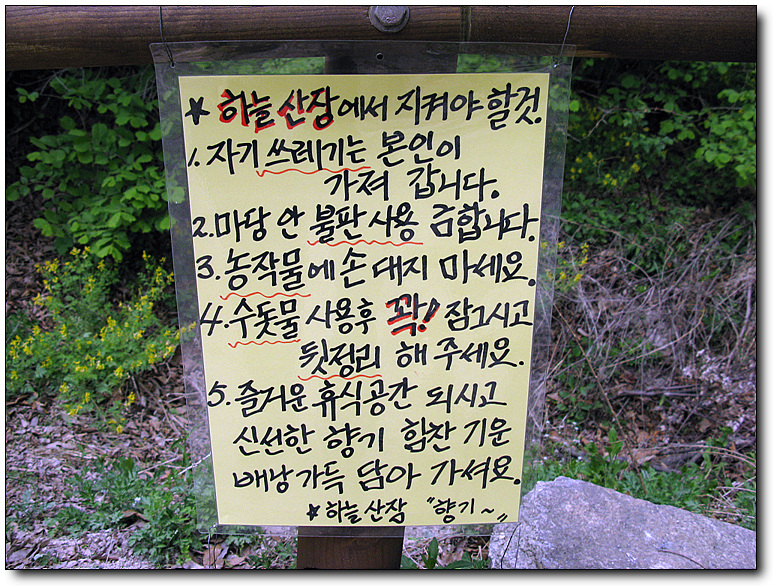 ★ 하늘 산장에서 지켜야 할것.
1. 자기 쓰레기는 본인이
가져 갑니다.
2. 마당 안 불판 사용 금합니다.
3. 농작물에 손 대지 마세요.
4. 수돗물 사용후 꽉! 잠그시고
뒷정리 해 주세요.
5. 즐거운 휴식공간 되시고
신선한 향기 힘찬 기운
배낭가득 담아 가셔요.
★ 하늘 산장 "향기~"